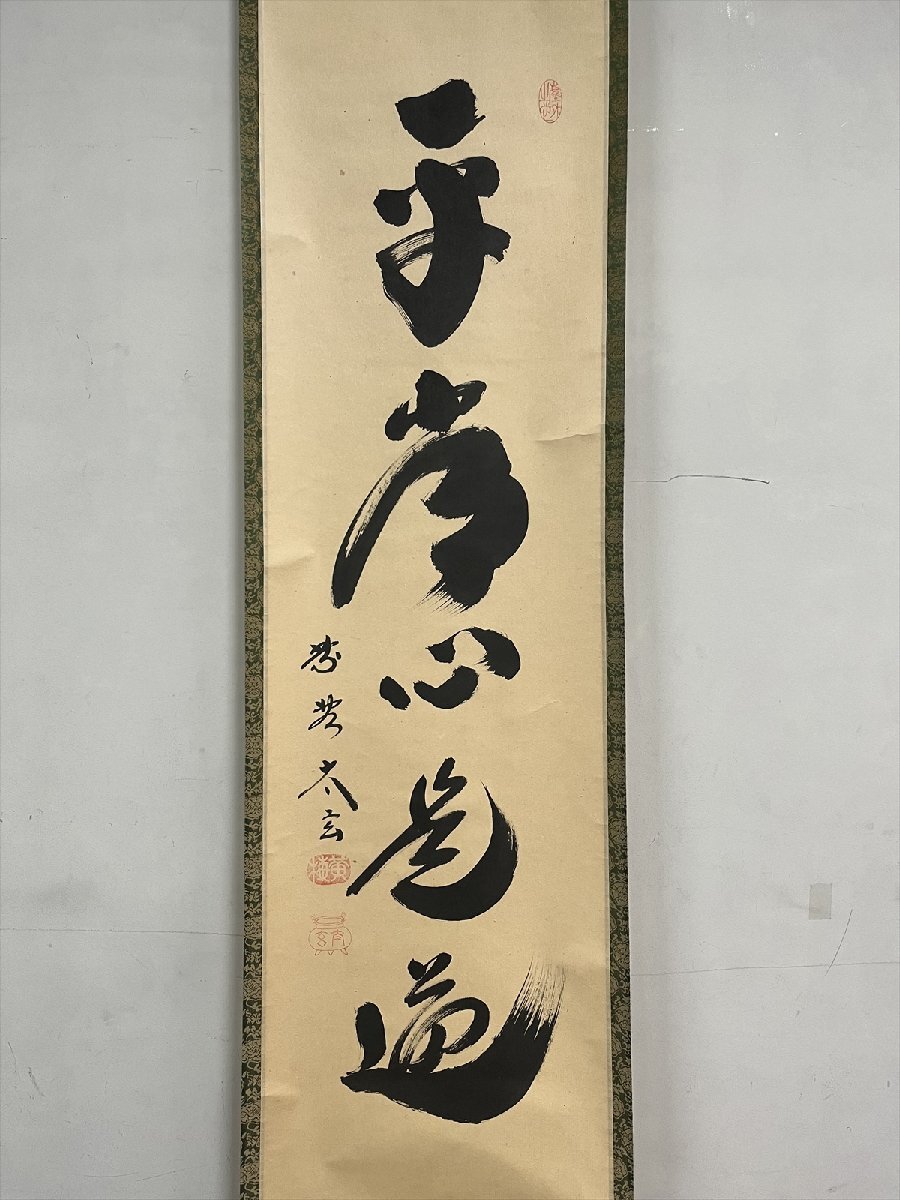 平常心是道
紫野 太玄